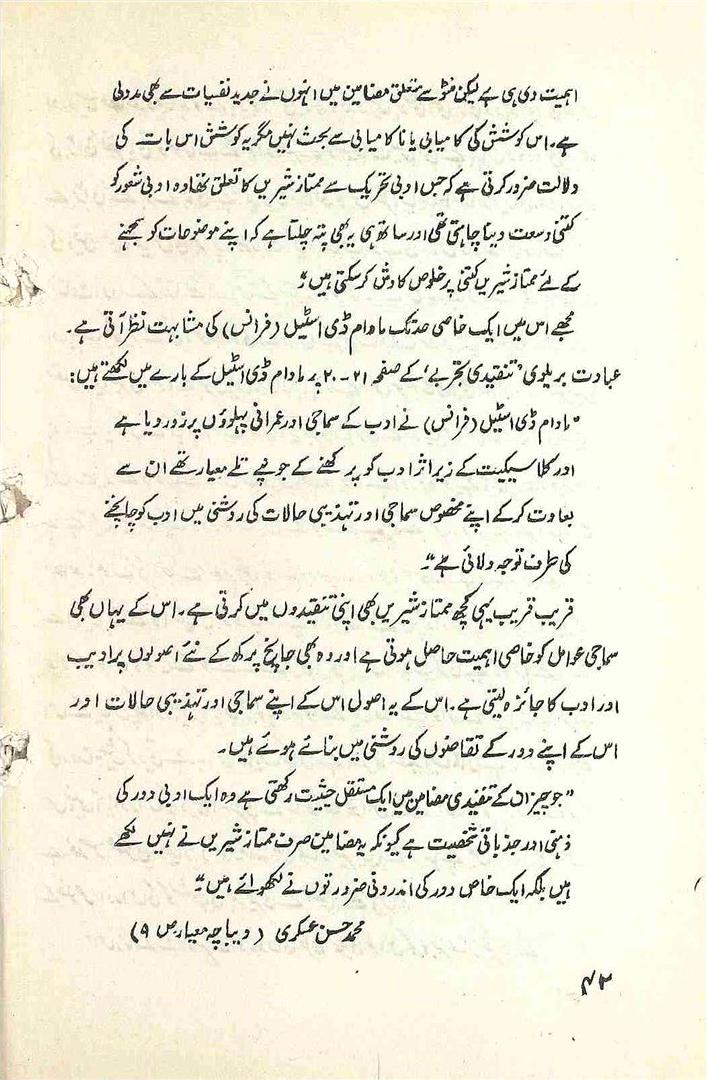 اہمیت دی ہی ہے لیکن منٹو سے متعلق مضامین میں انہوں نے جدید نفسیات سے بھی مدد لی
ہے۔ اس کوشش کی کامیابی یا ناکامیابی سے بحث نہیں مگر یہ کوشش اس بات کی
دلالت ضرور کرتی ہے کہ جس ادبی تحریک سے ممتاز شیریں کا تعلق تھا وہ ادبی شعور کو
کتنی وسعت دینا چاہتی تھی اور ساتھ ہی یہ بھی پتہ چلتا ہے کہ اپنے موضوعات کو سمجھنے
کے لئے ممتاز شیریں کتنی پر خلوص کاوش کر سکتی ہیں"
مجھے اس میں ایک خاصی حد تک مادام ڈی اسٹیل (فرانس) کی مشابہت نظر آتی ہے۔
عبادت بریلوی "تنقیدی تجربے" کے صفحہ ۲۱-۲۰ پر مادام ڈی اسٹیل کے بارے میں لکھتے ہیں:
"مادام ڈی اسٹیل (فرانس) نے ادب کے سماجی اور عمرانی پہلوؤں پر زور دیا ہے
اور کلاسیکیت کے زیر اثر ادب کو پرکھنے کے جو نپے تلے معیار تھے ان سے
بغاوت کر کے اپنے مخصوص سماجی اور تہذیبی حالات کی روشنی میں ادب کو جانچنے
کی طرف توجہ دلائی ہے"۔
قریب قریب یہی کچھ ممتاز شیریں بھی اپنی تنقیدوں میں کرتی ہے۔ اس کے یہاں بھی
سماجی عوامل کو خاصی اہمیت حاصل ہوتی ہے اور وہ بھی جانچ پرکھ کے نئے اصولوں پر ادیب
اور ادب کا جائزہ لیتی ہے۔ اس کے یہ اصول اس کے اپنے سماجی اور تہذیبی حالات اور
اس کے اپنے دور کے تقاضوں کی روشنی میں بنائے ہوئے ہیں۔
"جو چیز ان کے تنقیدی مضامین میں ایک مستقل حیثیت رکھتی ہے وہ ایک ادبی دور کی
ذہنی اور جذباتی شخصیت ہے کیونکہ یہ مضامین صرف ممتاز شیریں نے نہیں لکھے
ہیں بلکہ ایک خاص دور کی اندرونی ضرورتوں نے لکھوائے ہیں"۔
محمد حسن عسکری (دیباچہ معیار ص ۹)
۴۲